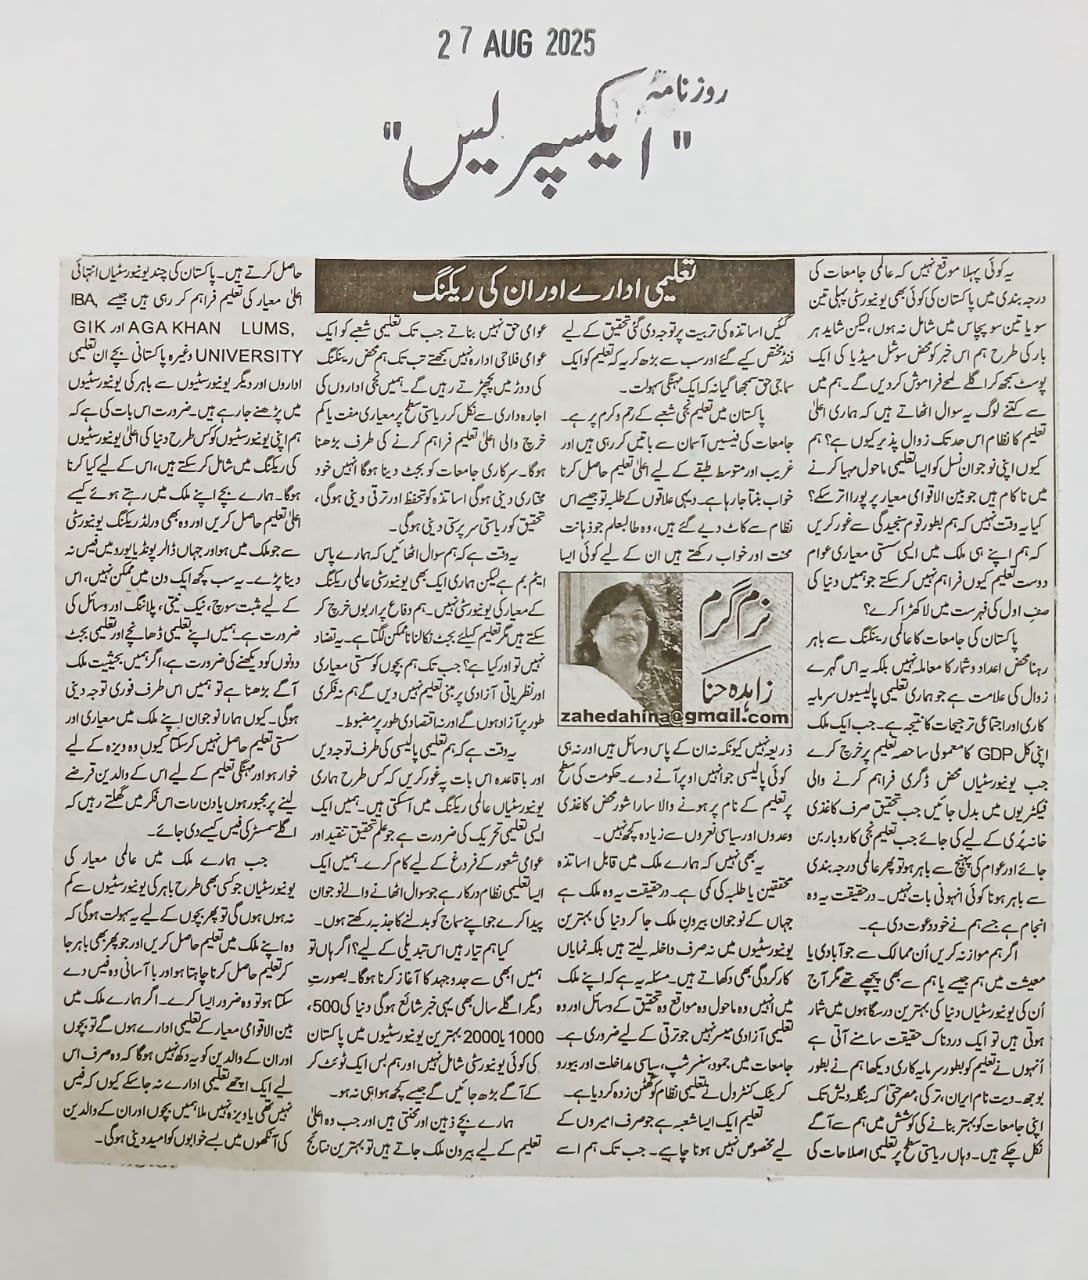 27 AUG 2025
روزنامہ
"ایکسپریس"
تعلیمی ادارے اور ان کی ریکنگ
یہ کوئی پہلا موقع نہیں کہ عالمی جامعات کی
درجہ بندی میں پاکستان کی کوئی بھی یونیورسٹی پہلی تین
سو یا تین سو پچاس میں شامل نہ ہوں، لیکن شاید ہر
بار کی طرح ہم اس خبر کو محض سوشل میڈیا کی ایک
پوسٹ سمجھ کر اگلے لمحے فراموش کردیں گے۔ ہم میں
سے کتنے لوگ یہ سوال اٹھاتے ہیں کہ ہماری اعلیٰ
تعلیم کا نظام اس حد تک زوال پذیر کیوں ہے؟ ہم
کیوں اپنی نوجوان نسل کو ایسا تعلیمی ماحول مہیا کرنے
میں ناکام ہیں جو بین الاقوامی معیار پر پورا اتر سکے؟
کیا یہ وقت نہیں کہ ہم بطور قوم سنجیدگی سے غور کریں
کہ ہم اپنے ہی ملک میں ایسی سستی معیاری عوام
دوست تعلیم کیوں فراہم نہیں کرسکتے جو ہمیں دنیا کی
صف اول کی فہرست میں لا کھڑا کرے؟
پاکستان کی جامعات کا عالمی رینکنگ سے باہر
رہنا محض اعداد و شمار کا معاملہ نہیں بلکہ یہ اس گہرے
زوال کی علامت ہے جو ہماری تعلیمی پالیسیوں سرمایہ
کاری اور اجتماعی ترجیحات کا نتیجہ ہے۔ جب ایک ملک
اپنی کل GDP کا معمولی سا حصہ تعلیم پر خرچ کرے
جب یونیورسٹیاں محض ڈگری فراہم کرنے والی
فیکٹریوں میں بدل جائیں جب تحقیق صرف کاغذی
خانہ پُری کے لیے کی جائے جب تعلیم نجی کاروبار بن
جائے اور عوام کی پہنچ سے باہر ہو تو پھر عالمی درجہ بندی
سے باہر ہونا کوئی انہونی بات نہیں۔ درحقیقت یہ وہ
انجام ہے جسے ہم نے خود دعوت دی ہے۔
اگر ہم موازنہ کریں اُن ممالک سے جو آبادی یا
معیشت میں ہم جیسے یا ہم سے بھی پیچھے تھے مگر آج
اُن کی یونیورسٹیاں دنیا کی بہترین درسگاہوں میں شمار
ہوتی ہیں تو ایک دردناک حقیقت سامنے آتی ہے
اُنہوں نے تعلیم کو بطور سرمایہ کاری دیکھا ہم نے بطور
بوجھ۔ ویت نام ایران، ترکی، مصر حتیٰ کہ بنگلہ دیش تک
اپنی جامعات کو بہتر بنانے کی کوشش میں ہم سے آگے
نکل چکے ہیں۔ وہاں ریاستی سطح پر تعلیمی اصلاحات کی
گئیں اساتذہ کی تربیت پر توجہ دی گئی تحقیق کے لیے
فنڈ مختص کیے گئے اور سب سے بڑھ کر یہ کہ تعلیم کو ایک
سماجی حق سمجھا گیا نہ کہ ایک مہنگی سہولت۔
پاکستان میں تعلیم نجی شعبے کے رحم و کرم پر ہے۔
جامعات کی فیسیں آسمان سے باتیں کر رہی ہیں اور
غریب اور متوسط طبقے کے لیے اعلیٰ تعلیم حاصل کرنا
خواب بنتا جا رہا ہے۔ دیہی علاقوں کے طلبہ تو جیسے اس
نظام سے کاٹ دیے گئے ہیں، وہ طالبعلم جو ذہانت
محنت اور خواب رکھتے ہیں ان کے لیے کوئی ایسا
نرم گرم
زاہدہ حنا
zahedahina@gmail.com
ذریعہ نہیں کیونکہ نہ ان کے پاس وسائل ہیں اور نہ ہی
کوئی پالیسی جو انہیں اوپر آنے دے۔ حکومت کی سطح
پر تعلیم کے نام پر ہونے والا سارا شور محض کاغذی
وعدوں اور سیاسی نعروں سے زیادہ کچھ نہیں۔
یہ بھی نہیں کہ ہمارے ملک میں قابل اساتذہ
محققین یا طلبہ کی کمی ہے۔ درحقیقت یہ وہ ملک ہے
جہاں کے نوجوان بیرونِ ملک جا کر دنیا کی بہترین
یونیورسٹیوں میں نہ صرف داخلہ لیتے ہیں بلکہ نمایاں
کارکردگی بھی دکھاتے ہیں۔ مسئلہ یہ ہے کہ اپنے ملک
میں انہیں وہ ماحول وہ مواقع وہ تحقیق کے وسائل اور وہ
تعلیمی آزادی میسر نہیں جو ترقی کے لیے ضروری ہے۔
جامعات میں جمود، سنسر شپ، سیاسی مداخلت اور بیورو
کریٹک کنٹرول نے تعلیمی نظام کو گھٹن زدہ کر دیا ہے۔
تعلیم ایک ایسا شعبہ ہے جو صرف امیروں کے
لیے مخصوص نہیں ہونا چاہیے۔ جب تک ہم اسے
عوامی حق نہیں بناتے جب تک تعلیمی شعبے کو ایک
عوامی فلاحی ادارہ نہیں سمجھتے تب تک ہم محض رینکنگ
کی دوڑ میں پچھڑتے رہیں گے۔ ہمیں نجی اداروں کی
اجارہ داری سے نکل کر ریاستی سطح پر معیاری مفت یا کم
خرچ والی اعلیٰ تعلیم فراہم کرنے کی طرف بڑھنا
ہوگا۔ سرکاری جامعات کو بجٹ دینا ہوگا انہیں خود
مختاری دینی ہوگی اساتذہ کو تحفظ اور ترقی دینی ہوگی،
تحقیق کو ریاستی سرپرستی دینی ہوگی۔
یہ وقت ہے کہ ہم سوال اٹھائیں کہ ہمارے پاس
ایٹم بم ہے لیکن ہماری ایک بھی یونیورسٹی عالمی رینکنگ
کے معیار کی یونیورسٹی نہیں۔ ہم دفاع پر اربوں خرچ کر
سکتے ہیں مگر تعلیم کیلئے بجٹ نکالنا ناممکن لگتا ہے۔ یہ تضاد
نہیں تو اور کیا ہے؟ جب تک ہم بچوں کو سستی معیاری
اور نظریاتی آزادی پر مبنی تعلیم نہیں دیں گے ہم نہ فکری
طور پر آزاد ہوں گے اور نہ اقتصادی طور پر مضبوط۔
یہ وقت ہے کہ ہم تعلیمی پالیسی کی طرف توجہ دیں
اور باقاعدہ اس بات پر غور کریں کہ کس طرح ہماری
یونیورسٹیاں عالمی ریکنگ میں آسکتی ہیں۔ ہمیں ایک
ایسی تعلیمی تحریک کی ضرورت ہے جو علم تحقیق تنقید اور
عوامی شعور کے فروغ کے لیے کام کرے۔ ہمیں ایک
ایسا تعلیمی نظام درکار ہے جو سوال اٹھانے والے نوجوان
پیدا کرے جو اپنے سماج کو بدلنے کا جذبہ رکھتے ہوں۔
کیا ہم تیار ہیں اس تبدیلی کے لیے؟ اگر ہاں تو
ہمیں ابھی سے جدوجہد کا آغاز کرنا ہوگا۔ بصورتِ
دیگر اگلے سال بھی یہی خبر شائع ہوگی دنیا کی 500،
1000 یا 2000 بہترین یونیورسٹیوں میں پاکستان
کی کوئی یونیورسٹی شامل نہیں اور ہم بس ایک ٹوئٹ کر
کے آگے بڑھ جائیں گے جیسے کچھ ہوا ہی نہ ہو۔
ہمارے بچے ذہین اور محنتی ہیں اور جب وہ اعلیٰ
تعلیم کے لیے بیرون ملک جاتے ہیں تو بہترین نتائج
حاصل کرتے ہیں۔ پاکستان کی چند یونیورسٹیاں انتہائی
اعلیٰ معیار کی تعلیم فراہم کر رہی ہیں جیسے IBA,
GIK اور AGA KHAN LUMS,
UNIVERSITY وغیرہ پاکستانی بچے ان تعلیمی
اداروں اور دیگر یونیورسٹیوں سے باہر کی یونیورسٹیوں
میں پڑھنے جا رہے ہیں۔ ضرورت اس بات کی ہے کہ
ہم اپنی یونیورسٹیوں کو کس طرح دنیا کی اعلیٰ یونیورسٹیوں
کی ریکنگ میں شامل کرسکتے ہیں، اس کے لیے کیا کرنا
ہوگا۔ ہمارے بچے اپنے ملک میں رہتے ہوئے کیسے
اعلیٰ تعلیم حاصل کریں اور وہ بھی ورلڈ ریکنگ یونیورسٹی
سے جو ملک میں ہو اور جہاں ڈالر پونڈ یا یورو میں فیس نہ
دینا پڑے۔ یہ سب کچھ ایک دن میں ممکن نہیں، اس
کے لیے مثبت سوچ، نیک نیتی، پلاننگ اور وسائل کی
ضرورت ہے۔ ہمیں اپنے تعلیمی ڈھانچے اور تعلیمی بجٹ
دونوں کو دیکھنے کی ضرورت ہے، اگر ہمیں بحیثیت ملک
آگے بڑھنا ہے تو ہمیں اس طرف فوری توجہ دینی
ہوگی۔ کیوں ہمارا نوجوان اپنے ملک میں معیاری اور
سستی تعلیم حاصل نہیں کرسکتا کیوں وہ ویزہ کے لیے
خوار ہو اور مہنگی تعلیم کے لیے اس کے والدین قرضے
لینے پر مجبور ہوں یا دن رات اس فکر میں گھلتے رہیں کہ
اگلے سمسٹر کی فیس کیسے دی جائے۔
جب ہمارے ملک میں عالمی معیار کی
یونیورسٹیاں جو کسی بھی طرح باہر کی یونیورسٹیوں سے کم
نہ ہوں ہوں گی تو پھر بچوں کے لیے یہ سہولت ہوگی کہ
وہ اپنے ملک میں تعلیم حاصل کریں اور جو پھر بھی باہر جا
کر تعلیم حاصل کرنا چاہتا ہو اور با آسانی وہ فیس دے
سکتا ہو تو وہ ضرور ایسا کرے۔ اگر ہمارے ملک میں
بین الاقوامی معیار کے تعلیمی ادارے ہوں گے تو بچوں
اور ان کے والدین کو یہ دکھ نہیں ہوگا کہ وہ صرف اس
لیے ایک اچھے تعلیمی ادارے نہ جا سکے کیوں کہ فیس
نہیں تھی یا ویزہ نہیں ملا ہمیں بچوں اور ان کے والدین
کی آنکھوں میں بسے خوابوں کو امید دینی ہوگی۔